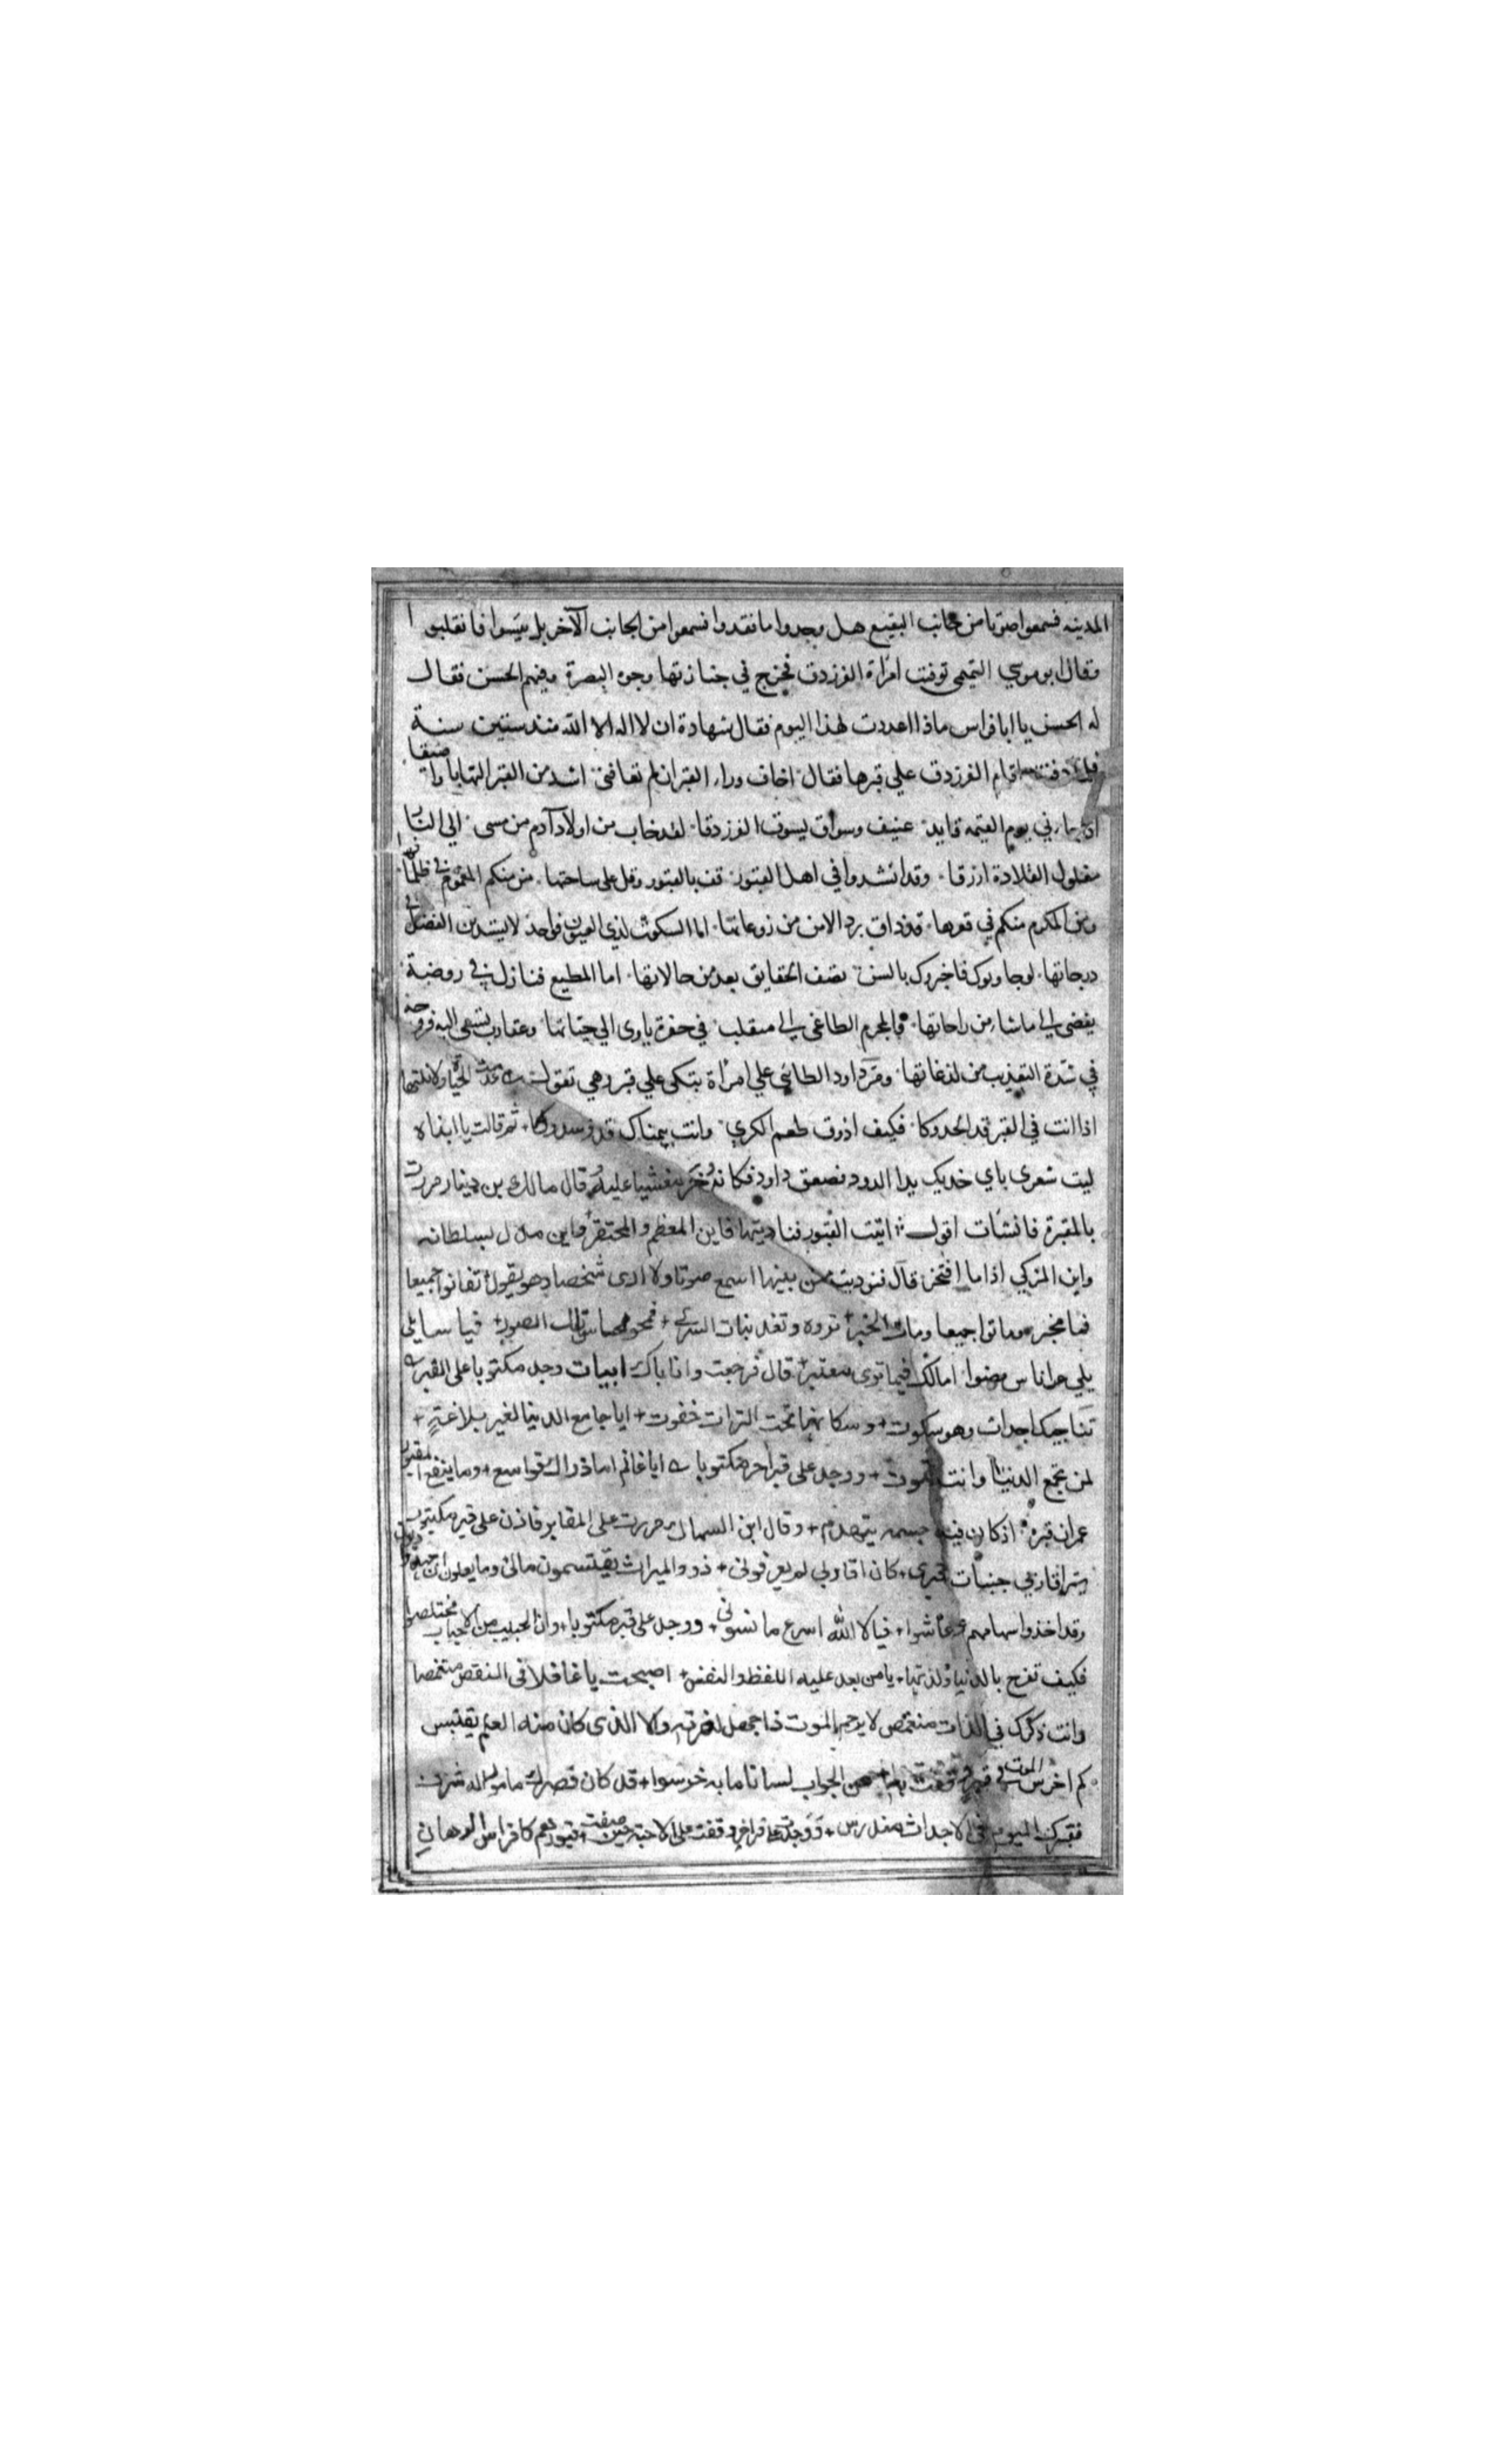 المدينه فسمعوا صوتا من جانب البقيع هل وجدوا ما فقدوا فسمعوا من الجانب الآخر بل يئسوا فانقلبوا
وقال ابو موسي التميمى توفيت امراة الفرزدق فخرج في جنازتها وجوه البصرة وفيهم الحسن فقال
له الحسن يا ابا فراس ماذا اعددت لهذا اليوم فقال شهادة ان لا اله الا الله منذ ستين سنة
فلما دفنت اقام الفرزدق علي قبرها فقال اخاف وراء القبر ان لم تعافنى اشد من القبر التهابا واضيقا
اذا جاءني يوم القيمه قايد عنيف وسواق يسوق الفرزدقا لقد خاب من اولاد آدم من مسى الي النار
مغلول القلادة ازرقا وقد انشدوا في اهل القبور قف بالقبور وقل على ساحتها من منكم المغموم في ظلماتها
ومن المكرم منكم في قعرها قد ذاق برد الامن من روعاتها اما السكوت لذي العيون فواحد لا يستبين الفضل في
درجاتها لو جاوبوك فاخبروك بالسن تصف الحقايق بعد من حالاتها اما المطيع فنازل في روضة
يفضى الى ما شاء من راحاتها والمجرم الطاغى بها متقلب في حفرة ياوى الي حياتها وعقارب تسعى اليه فروحه
في شدة التعذيب من لدغاتها ومر داود الطائي علي امرأة تبكى علي قبر وهي تقول عدمت الحياة ولا نلتها
اذا انت في القبر قد الحدوكا فكيف اذوق طعم الكري وانت بيمناك قد وسدوكا ثم قالت يا ابناه
ليت شعرى باي خديك بدا الدود فصعق داود مكانه وخر مغشيا عليه وقال مالك بن دينار مررت
بالمقبرة فانشات اقول اتيت القبور فناديتها فاين المعظم والمحتقر واين المدل بسلطانه
واين المزكي اذا ما افتخر قال فنوديت من بينها اسمع صوتا ولا ارى شخصا وهو يقول تفانوا جميعا
فما مخبر وماتوا جميعا ومات الخبر تروح وتغدو بنات الثرى فتمحو محاسن تلك الصور فيا سايلى
عن اناس مضوا امالك فيما ترى معتبر قال فرجعت وانا باك ابيات وجد مكتوبا على القبر
تناجيك اجداث وهو سكوت وسكانها تحت التراب خفوت ايا جامع الدنيا لغير بلاغة
لمن تجمع الدنيا وانت تموت ووجد على قبر اخر مكتوبا ايا غانم اما ذراك فواسع وما ينفع المقبور
عمران قبره اذ كان فيه جسمه يتهدم وقال ابن السماك مررت على المقابر فاذن على قبر مكتوب
يمر اقاربي جنبات قبرى كان اقاربي لم يعرفونى ذوو الميراث يقتسمون مالى وما يعلون ان جحدوا ديونى
وقد اخذوا سهامهم وعاشوا فيا لا الله اسرع ما نسونى ووجد على قبر مكتوبا وان الحبيب من الاحباب مختلصوا
فكيف تفرح بالدنيا ولذتها يا من بعد عليه اللفظ والنفس اصبحت يا غافلا فى النقص منتخصا
وانت ذكرك في اللذات منتخص لا يرحم الموت ذا جهل لغرته ولا الذى كان منه العلم يقتبس
كم اخرس الموت فى قبر وقفت به عن الجواب لسانا ما به خرسوا قد كان قصرك مامولا له شرف
فقبرك اليوم فى الاجداث مندرس ووجد على قبر اخر وقفت على الاحبة حين صفت قبورهم كافراس الرهان